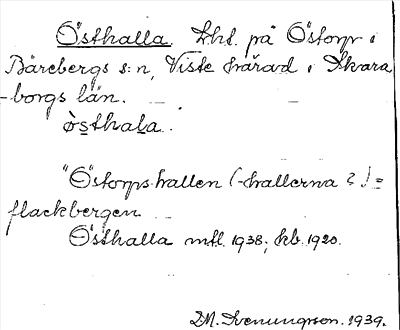 Östhalla Lht. på Östorp i
Bärebergs s:n, Viste härad i Skara
-borgs län.
ò̱sthala.
"Östorpshallen (-hallerna?) =
flackbergen
Östhalla mtl. 1938; kb. 1920.
D.M. Svenungson. 1939.